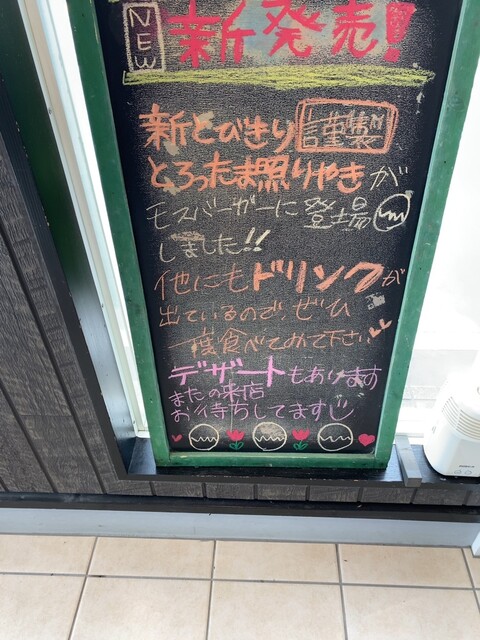 NEW 新発売!
新とびきり 謹製
とろったま照りやきが
モスバーガーに登場
しました!!
他にもドリンクが
出ているので、ぜひ
一度食べてみて下さい
デザートもあります
またの来店
お待ちしてます